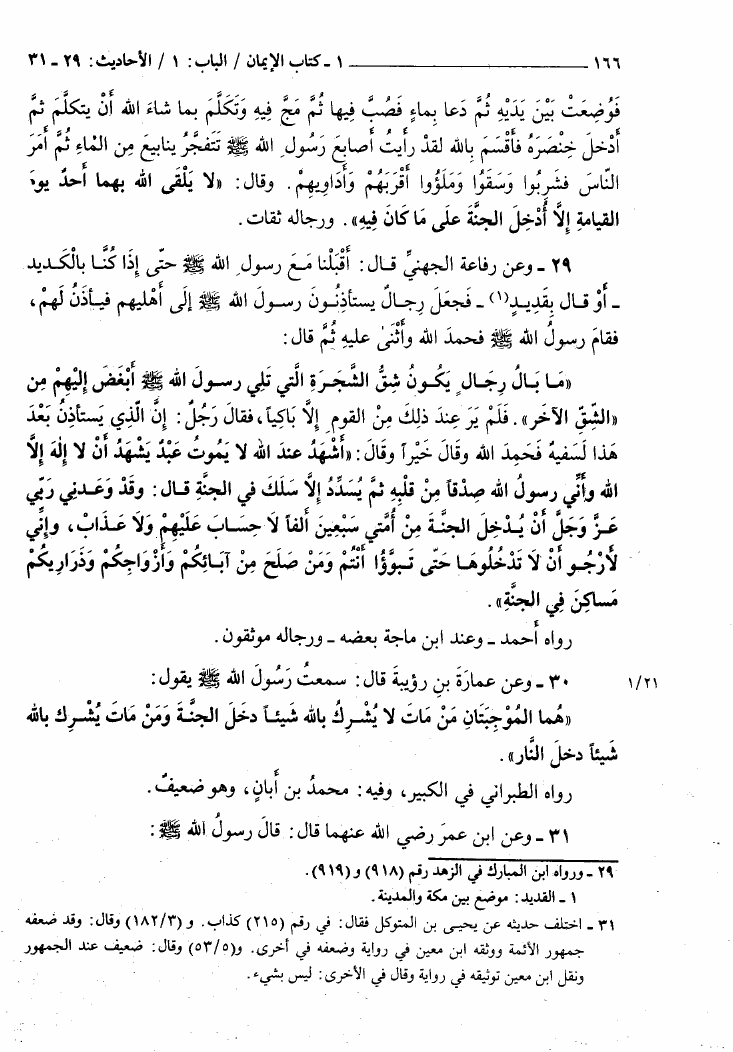 ١٦٦ ــــــــــــــــــــــــــــــ ١ ـ كتاب الإيمان / الباب: ١ / الأحاديث: ٢٩ ـ ٣١
فَوُضِعَتْ بَيْنَ يَدَيْهِ ثُمَّ دَعا بِماءٍ فَصُبَّ فِيها ثُمَّ مَجَّ فِيهِ وَتَكَلَّمَ بما شاءَ الله أَنْ يتكلَّمَ ثُمَّ
أَدْخلَ خِنْصَرَهُ فأَقْسَمَ بِالله لقدْ رأَيتُ أَصابعَ رَسُولِ الله ﷺ تَتَفجَّرُ ينابيعَ مِن المْاءِ ثُمَّ أَمَرَ
النّاسَ فشَرِبُوا وَسَقَوْا وَمَلَؤُوا أَقْرَبَهُمْ وأَدَاوِيهِمْ. وقال: «لا يَلْقَى الله بهما أحدٌ يومَ
القيامةِ إِلَّا أُدْخِلَ الجنَّةَ علَى مَا كَانَ فِيهِ». ورجاله ثقات.
٢٩ ـ وعن رفاعة الجهنيِّ قال: أَقْبَلْنا مَعَ رسول الله ﷺ حتَّى إِذَا كُنَّا بالْكَديد
ـ أَوْ قال بِقَديدٍ(١) ـ فجعَلَ رِجالٌ يستأذِنُونَ رسولَ الله ﷺ إِلَى أَهْليهم فيأذَنُ لَهمْ،
فقامَ رسولُ الله ﷺ فحمدَ الله وأَثْنَىٰ عليهِ ثُمَّ قال:
«مَا بَالُ رِجَالٍ يَكُونُ شِقُّ الشَّجَرَةِ الَّتي تَلِي رسولَ الله ﷺ أَبْغَضَ إِلَيْهِمْ مِن
«الشِّقِّ الآخَرِ». فَلَمْ يَرَ عِنْدَ ذلِكَ مِنْ القومِ إِلَّا بَاكِياً، فقالَ رَجُلٌ: إِنَّ الَّذي يَستأذِنُ بَعْدَ
هَذا لَسَفيهٌ فَحَمِدَ الله وقالَ خَيْراً وقَالَ: «أَشْهَدُ عندَ الله لا يَمُوتُ عَبْدٌ يَشْهَدُ أَنْ لا إِلٰهَ إِلَّا
الله وأَنِّي رسولُ الله صِدْقاً مِنْ قلبِهِ ثمَّ يُسَدِّدُ إِلَّا سَلَكَ في الجنَّةِ قال: وقَدْ وَعَدني رَبِّي
عزَّ وَجَلَّ أَنْ يُدْخِلَ الجنَّةَ مِنْ أُمَّتي سَبْعينَ أَلفاً لَا حِسَابَ عَلَيْهِمْ وَلَا عَذَابَ، وإِنِّي
لَأَرْجُو أَنْ لَا تَدْخُلُوهَا حَتَّى تَبوَّؤُا أَنْتُمْ وَمَنْ صَلَحَ مِنْ آبَائِكُمْ وَأَزْوَاجِكُمْ وَذَرَاريكُمْ
مَساكِنَ فِي الجنَّةِ».
رواه أَحمد ـ وعند ابن ماجة بعضه ـ ورجاله موثقون.
٣٠ ـ وعن عمارَةَ بنِ رؤيبةَ قالَ: سمعتُ رَسُولَ الله ﷺ يقول: ١/٢١
«هُما المُوْجِبَتَانِ مَنْ مَاتَ لا يُشْرِكُ بالله شَيئاً دخَلَ الجنَّةَ وَمَنْ مَاتَ يُشْرِك بالله
شَيئاً دخلَ النَّار».
رواه الطبراني في الكبير، وفيه: محمدُ بن أَبانٍ، وهو ضعيفٌ.
٣١ ـ وعن ابن عمرَ رضي الله عنهما قال: قالَ رسولُ الله ﷺ:
٢٩ ـ ورواه ابن المبارك في الزهد رقم (٩١٨) و(٩١٩).
١ ـ القديد: موضع بين مكة والمدينة.
٣١ ـ اختلف حديثه عن يحيى بن المتوكل فقال: في رقم (٢١٥) كذاب. و (١٨٢/٣) وقال: وقد ضعفه
جمهور الأئمة ووثقه ابن معين في رواية وضعفه في أخرى. و(٥٣/٥) وقال: ضعيف عند الجمهور
ونقل ابن معين توثيقه في رواية وقال في الأخرى: ليس بشيء.